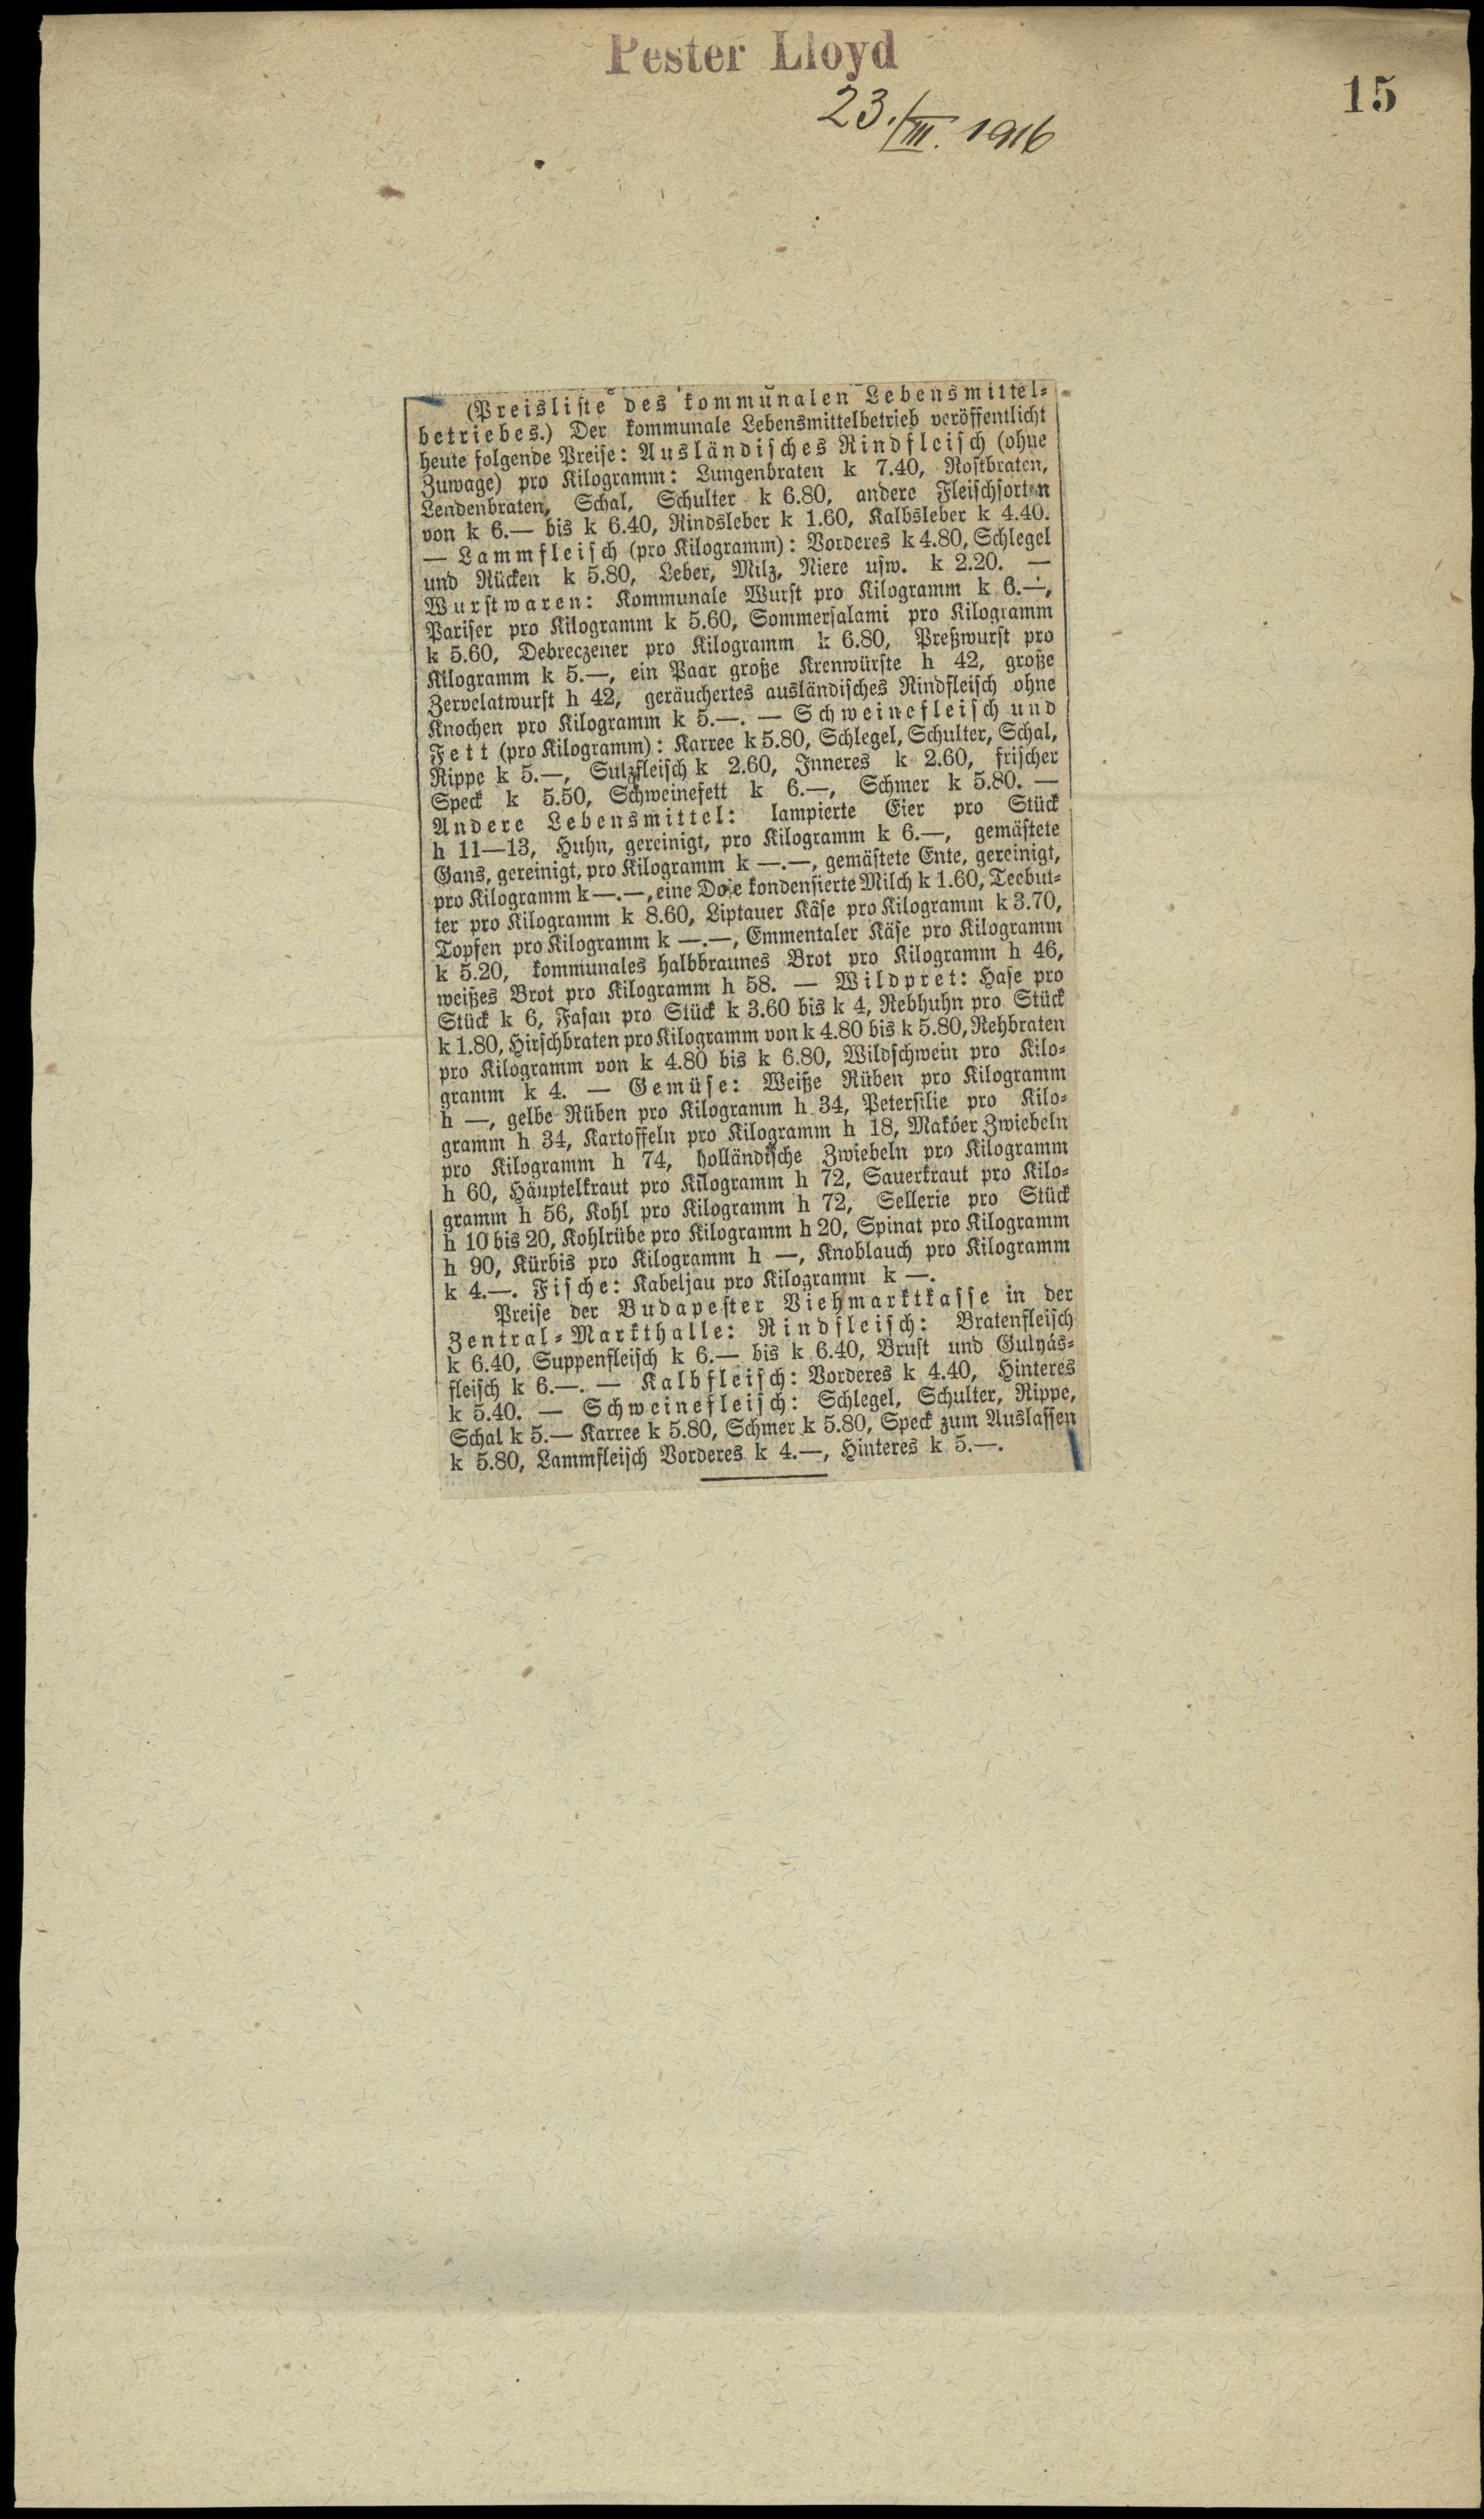 Pester Lloyd
15
23./III. 1916
(Preisliste des kommunalen Lebensmittel-
betriebes.) Der kommunale Lebensmittelbetrieb veröffentlicht
heute folgende Preise: Ausländisches Rindfleisch (ohne
Zuwage) pro Kilogramm: Lungenbraten k 7.40, Rostbraten,
Lendenbraten, Schal, Schulter k 6.80, andere Fleischsorten
von k 6.— bis k 6.40, Rindsleber k 1.60, Kalbsleber k 4.40.
— Lammfleisch (pro Kilogramm): Vorderes k 4.80, Schlegel
und Rücken k 5.80, Leber, Milz, Niere usw. k 2.20. —
Wurstwaren: Kommunale Wurst pro Kilogramm k 6.—,
Pariser pro Kilogramm k 5.60, Sommersalami pro Kilogramm
k 5.60, Debreczener pro Kilogramm k 6.80, Preßwurst pro
Kilogramm k 5.—, ein Paar große Krenwürste h 42, große
Zervelatwurst h 42, geräuchertes ausländisches Rindfleisch ohne
Knochen pro Kilogramm k 5.—. — Schweinefleisch und
Fett (pro Kilogramm): Karree k 5.80, Schlegel, Schulter, Schal,
Rippe k 5.—, Sulzfleisch k 2.60, Inneres k 2.60, frischer
Speck k 5.50, Schweinefett k 6.—, Schmer k 5.80. —
Andere Lebensmittel: lampierte Eier pro Stück
h 11—13, Huhn, gereinigt, pro Kilogramm k 6.—, gemästete
Gans, gereinigt, pro Kilogramm k —.—, gemästete Ente, gereinigt,
pro Kilogramm k —.—, eine Dose kondensierte Milch k 1.60, Teebut-
ter pro Kilogramm k 8.60, Liptauer Käse pro Kilogramm k 3.70,
Topfen pro Kilogramm k —.—, Emmentaler Käse pro Kilogramm
k 5.20, kommunales halbbraunes Brot pro Kilogramm h 46,
weißes Brot pro Kilogramm h 58. — Wildpret: Hase pro
Stück k 6, Fasan pro Stück k 3.60 bis k 4, Rebhuhn pro Stück
k 1.80, Hirschbraten pro Kilogramm von k 4.80 bis k 5.80, Rehbraten
pro Kilogramm von k 4.80 bis k 6.80, Wildschwein pro Kilo-
gramm k 4. — Gemüse: Weiße Rüben pro Kilogramm
h —, gelbe Rüben pro Kilogramm h 34, Petersilie pro Kilo-
gramm h 34, Kartoffeln pro Kilogramm h 18, Makóer Zwiebeln
pro Kilogramm h 74, holländische Zwiebeln pro Kilogramm
h 60, Häuptelkraut pro Kilogramm h 72, Sauerkraut pro Kilo-
gramm h 56, Kohl pro Kilogramm h 72, Sellerie pro Stück
h 10 bis 20, Kohlrübe pro Kilogramm h 20, Spinat pro Kilogramm
h 90, Kürbis pro Kilogramm h —, Knoblauch pro Kilogramm
k 4.—. Fische: Kabeljau pro Kilogramm k —.
Preise der Budapester Viehmarktkasse in der
Zentral-Markthalle: Rindfleisch: Bratenfleisch
k 6.40, Suppenfleisch k 6.— bis k 6.40, Brust und Gulyás-
fleisch k 6.—. — Kalbfleisch: Vorderes k 4.40, Hinteres
k 5.40. — Schweinefleisch: Schlegel, Schulter, Rippe,
Schal k 5.— Karree k 5.80, Schmer k 5.80, Speck zum Auslassen
k 5.80, Lammfleisch Vorderes k 4.—, Hinteres k 5.—.